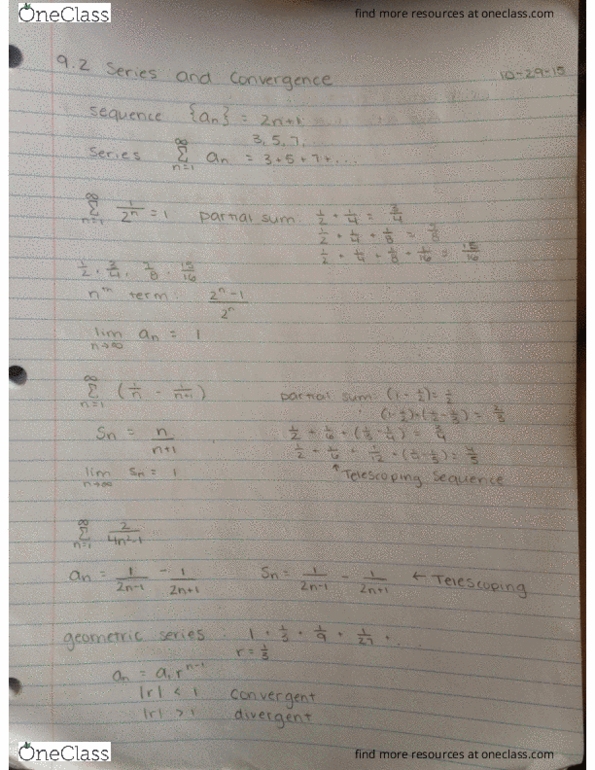 OneClass find more resources at oneclass.com
9.2 Series and Convergence 10-29-15
sequence {aₙ} = 2n+1
3, 5, 7,
series ∑ₙ₌₁^∞ aₙ = 3+5+7+...
∑ₙ₌₁^∞ 1/2ⁿ = 1 partial sum: 1/2 + 1/4 = 3/4
1/2 + 1/4 + 1/8 = 7/8
1/2 + 1/4 + 1/8 + 1/16 = 15/16
1/2, 3/4, 7/8, 15/16
nᵗʰ term: (2ⁿ-1)/2ⁿ
lim n→∞ aₙ = 1
∑ₙ₌₁^∞ (1/n - 1/(n+1)) partial sum: (1-1/2) = 1/2
(1-1/2)+(1/2-1/3) = 2/3
Sₙ = n/(n+1) 1/2 + 1/6 + (1/3-1/4) = 3/4
1/2 + 1/6 + 1/12 + (1/4-1/5) = 4/5
lim n→∞ Sₙ = 1 ↑Telescoping Sequence
∑ₙ₌₁^∞ 2/(4n²-1)
aₙ = 1/(2n-1) - 1/(2n+1) Sₙ = 1/(2n-1) - 1/(2n+1) ← Telescoping
geometric series: 1 + 1/3 + 1/9 + 1/27 + ...
r = 1/3
aₙ = a₁rⁿ⁻¹
|r| < 1 convergent
|r| > 1 divergent
OneClass find more resources at oneclass.com